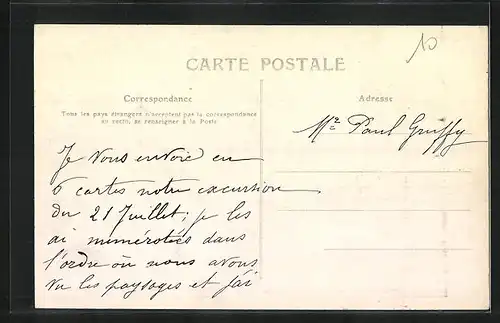 10
CARTE POSTALE
Correspondance
Tous les pays étrangers n'acceptent pas la correspondance
au recto, se renseigner à la Poste
Adresse
Mr Paul Gruffy
Je vous envoie en
6 cartes notre excursion
du 21 Juillet; je les
ai numérotées dans
l'ordre où nous avons
vu les paysages et j'ai